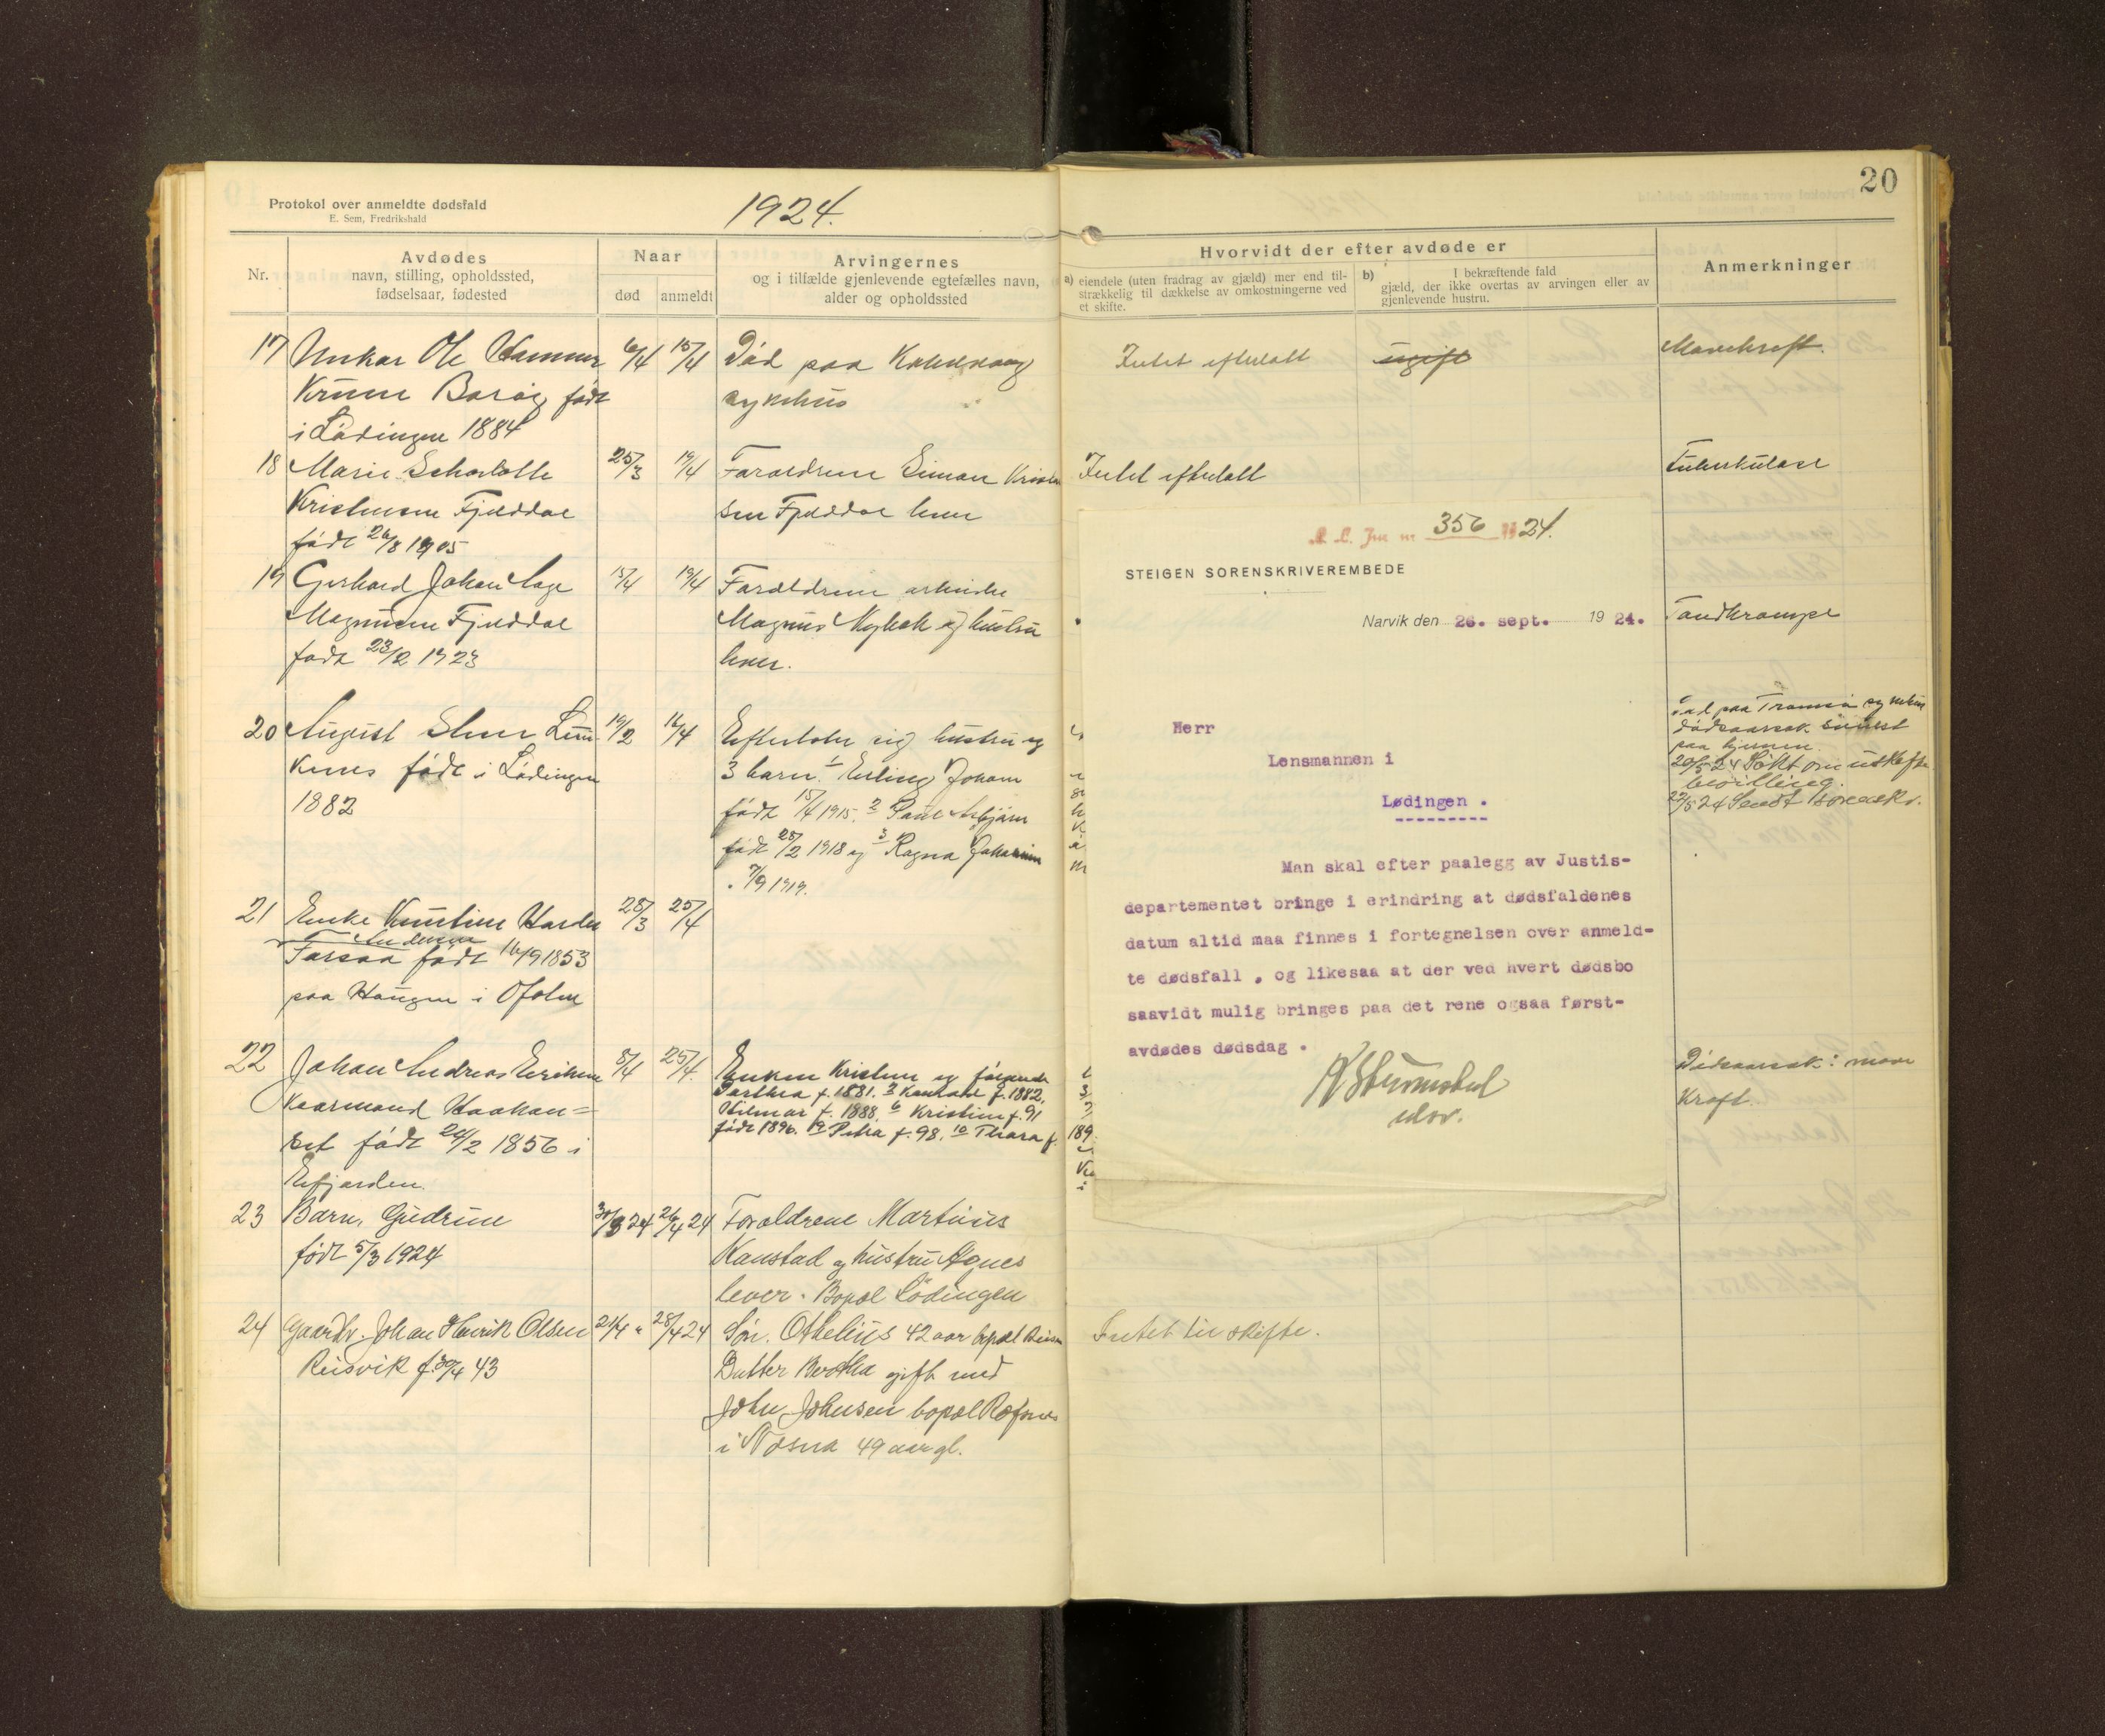 20
Protokol over anmeldte dødsfald
E. Sem, Fredrikshald
1924.
Nr.
Avdødes
navn, stilling, opholdssted,
fødselsaar, fødested
Naar
død
anmeldt
Arvingernes
og i tilfælde gjenlevende egtefælles navn,
alder og opholdssted
Hvorvidt der efter avdøde er
a) eiendele (uten fradrag av gjæld) mer end til-
strækkelig til dækkelse av omkostningerne ved
et skifte.
b) I bekræftende fald
gjæld, der ikke overtas av arvingen eller av
gjenlevende hustru.
Anmerkninger
17
Ole Hammer
født
i Lødingen 1884
6/4
15/4
Død paa
sykehus
Intet efterlatt
ugift
Mavekræft.
18
Marie Scharlotte
Kristensen Fjelddal
født 26/8 1905
25/3
19/4
Forældrene Simon Kristen
sen Fjelddal lever
Intet efterlatt
Tuberkulose
19
Gerhard Johan
Magnusen Fjelddal
født 23/2 1923
15/4
19/4
Forældrene
Magnus og hustru
lever.
Tandkrampe
20
August
født i Lødingen
1882
19/2
16/4
Efterlater sig hustru og
3 barn. 1 Erling Johan
født 15/4 1915. 2 Paul Asbjørn
født 28/2 1918 og 3 Ragna
7/9 1919.
Død paa Tromsø sykehus
dødsaarsak
paa hjernen.
20/5 24 Søkt om uskifte
bevilling.
22/5 24 Sendt sorenskr.
21
Enke
Andersen
født 16/9 1853
paa Haugen i Ofoten
28/3
25/4
22
Johan Andreas Eriksen
Kaarmand Haakon=
født 24/2 1856 i
Efjorden.
8/4
25/4.
Enken Kristine og følgende
f. 1881. 3 f. 1882.
Hilmar f. 1888. 6 Kristine f. 91
født 1896. 9 Petra f. 98. 10 Thora f.
189
Dødsaarsak: mave
Kræft.
23
Barn, Gudrun
født 5/3 1924
30/3 24
26/4 24
Forældrene Martinus
Kanstad og hustru Agnes
lever. Bopæl Lødingen
24
Gaardbr. Johan Henrik Olsen
Reisvik f. 30/4 43
21/4 "
28/4 24
Søn. Othelius 42 aar bopæl
Datter Bertha gift med
John Johnsen bopæl
i Nesna 49 aar gl.
Intet til skifte.
356 1924.
STEIGEN SORENSKRIVEREMBEDE
Narvik den 26. sept. 1924.
Herr
Lensmannen i
Lødingen .
Man skal efter paalegg av Justis-
departementet bringe i erindring at dødsfaldenes
datum altid maa finnes i fortegnelsen over anmeld-
te dødsfall , og likesaa at der ved hvert dødsbo
saavidt mulig bringes paa det rene ogsaa først-
avdødes dødsdag .